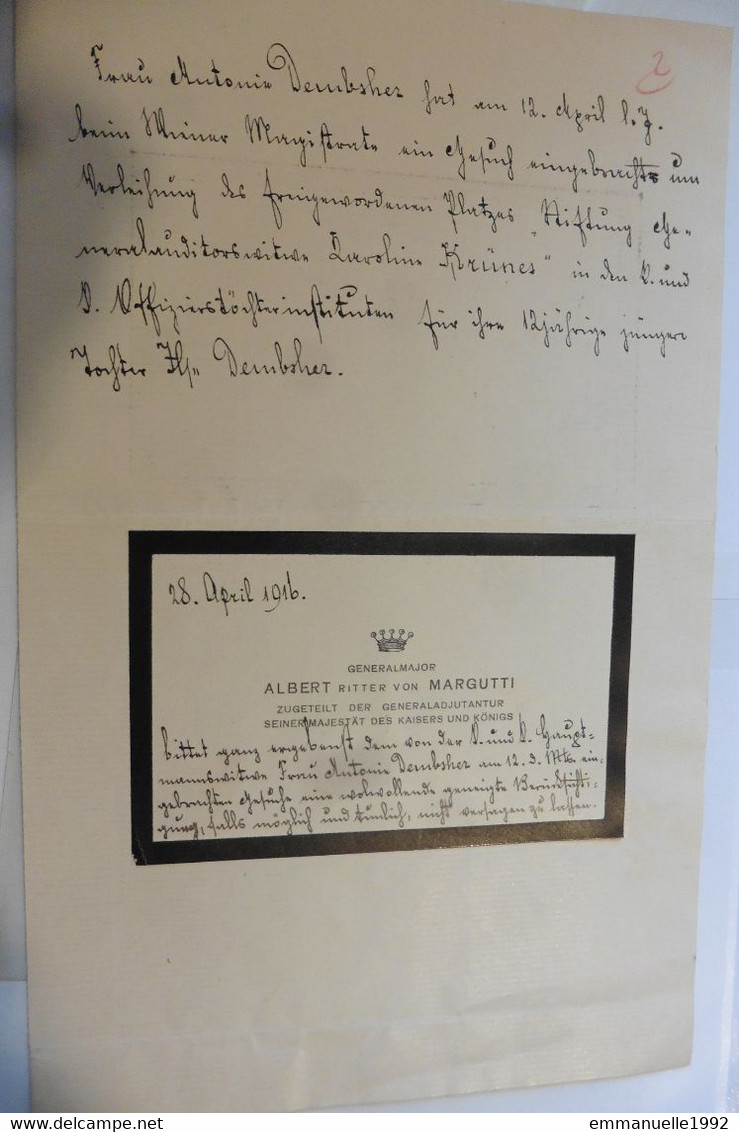 2
Frau Antonie Dembsher hat am 12. April l. J.
beim Wiener Magistrate ein Gesuch eingebracht um
Verleihung des freigewordenen Platzes „Stiftung Ge-
neralauditorswitwe Karoline Krünes“ in den k. und
k. Offizierstöchterinstituten für ihre 12jährige jüngere
Tochter Ilse Dembsher.
28. April 1916.
GENERALMAJOR
ALBERT RITTER VON MARGUTTI
ZUGETEILT DER GENERALADJUTANTUR
SEINER MAJESTÄT DES KAISERS UND KÖNIGS
bittet ganz ergebenst dem von der k. und k. Haupt-
mannswitwe Frau Antonie Dembsher am 12. d. Mts. ein-
gebrachten Gesuche eine wolwollende geneigte Berücksichti-
gung, falls möglich und tunlich, nicht versagen zu lassen.
emmanuelle1992